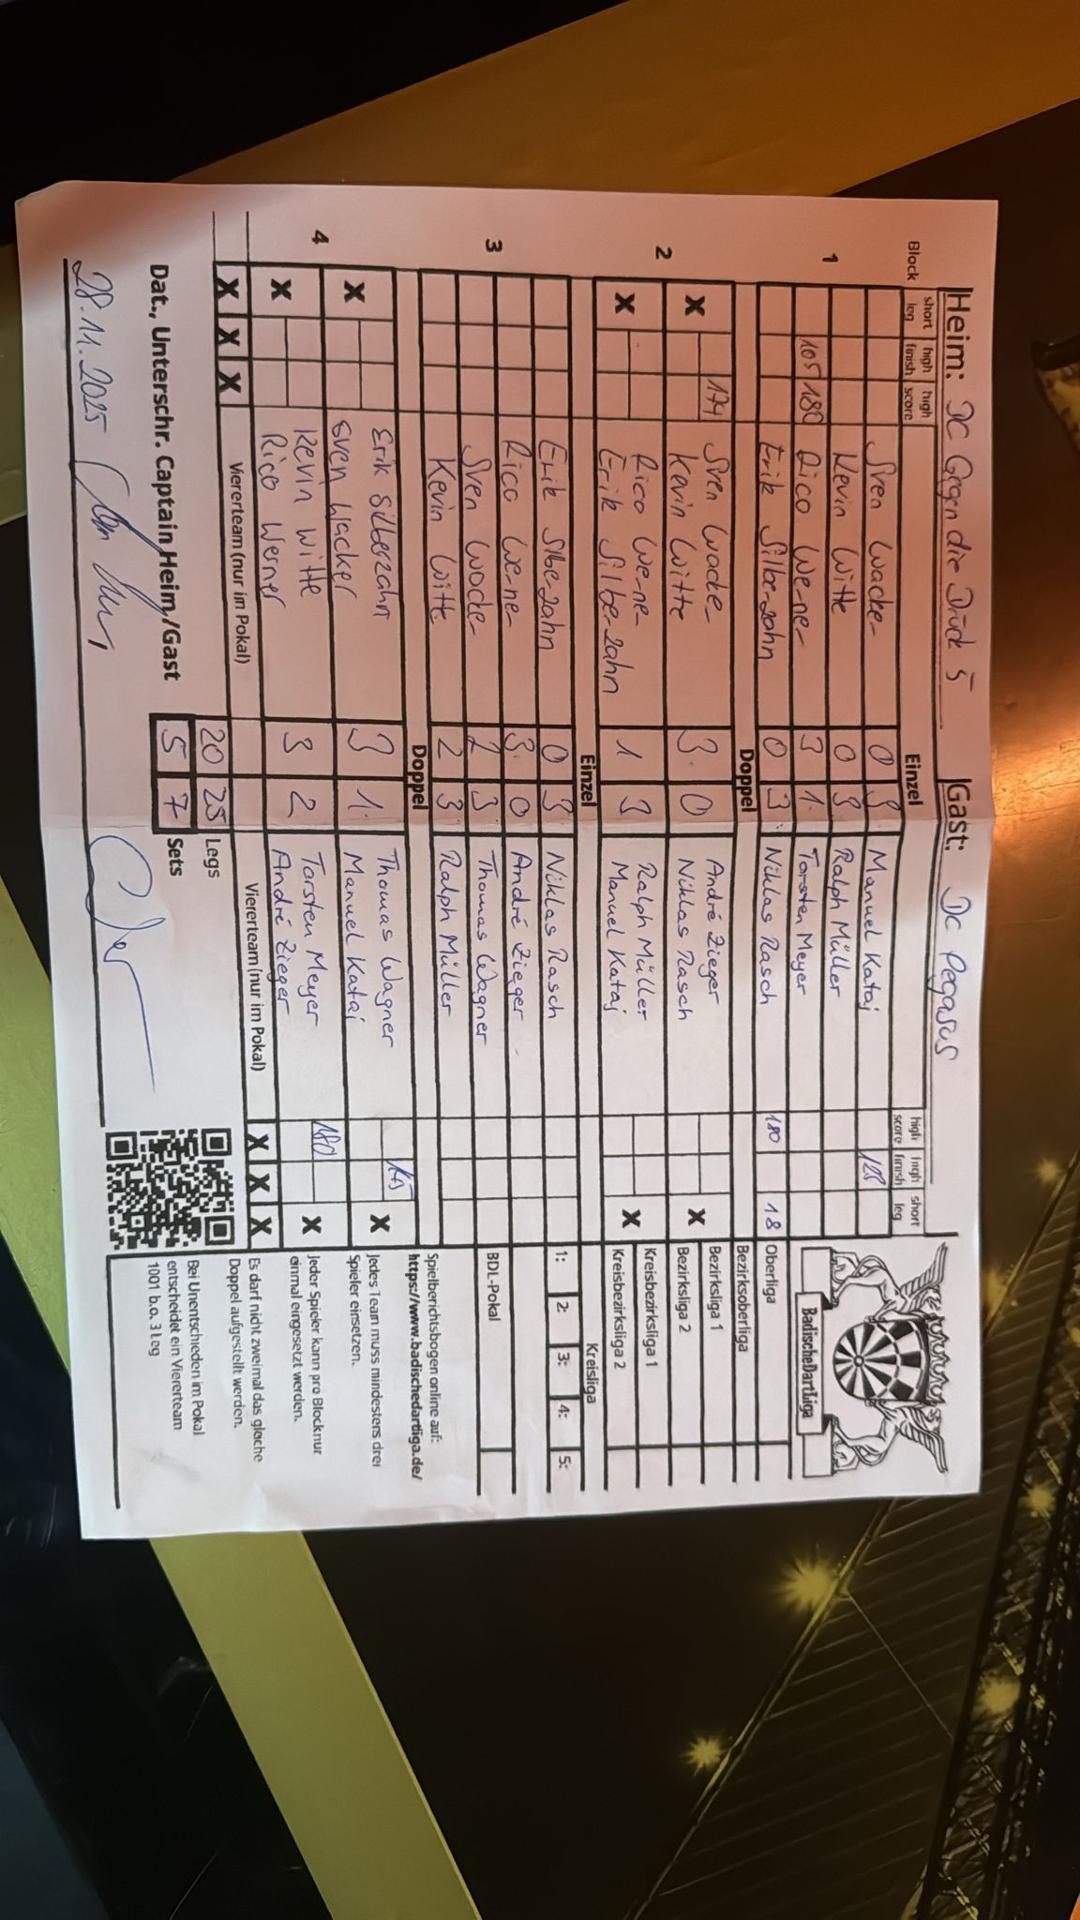 Heim: DC Gegen die Drück 5 Gast: DC Pegasus
Block short leg high finish high score Einzel high score high finish short leg
Sven Wacker 0 3 Manuel Kataj 128
1 Kevin Witte 0 3 Ralph Müller
105 180 Rico Werner 3 1 Torsten Meyer
Erik Silberzahn 0 3 Niklas Rasch 180 18
Doppel
174 Sven Wacker André Zieger
X Kevin Witte 3 0 Niklas Rasch X
2 Rico Werner Ralph Müller
X Erik Silberzahn 1 3 Manuel Kataj X
Einzel
Erik Silberzahn 0 3 Niklas Rasch
Rico Werner 3 0 André Zieger
3 Sven Wacker 2 3 Thomas Wagner
Kevin Witte 2 3 Ralph Müller
Doppel
Erik Silberzahn Thomas Wagner
X Sven Wacker 3 1 Manuel Kataj X
4 Kevin Witte Torsten Meyer 180
X Rico Werner 3 2 André Zieger X
Viererteam (nur im Pokal) Viererteam (nur im Pokal)
X X X X X X
20 25 Legs
Dat., Unterschr. Captain Heim/Gast 5 7 Sets
28.11.2025
BadischeDartLiga
Oberliga
Bezirksoberliga
Bezirksliga 1
Bezirksliga 2
Kreisbezirksliga 1
Kreisbezirksliga 2
Kreisliga
1: 2: 3: 4: 5:
BDL-Pokal
Spielberichtsbogen online auf:
https://www.badischedartliga.de/
Jedes Team muss mindestens drei
Spieler einsetzen.
Jeder Spieler kann pro Block nur
einmal eingesetzt werden.
Es darf nicht zweimal das gleiche
Doppel aufgestellt werden.
Bei Unentschieden im Pokal
entscheidet ein Viererteam
1001 b.o. 3 Leg